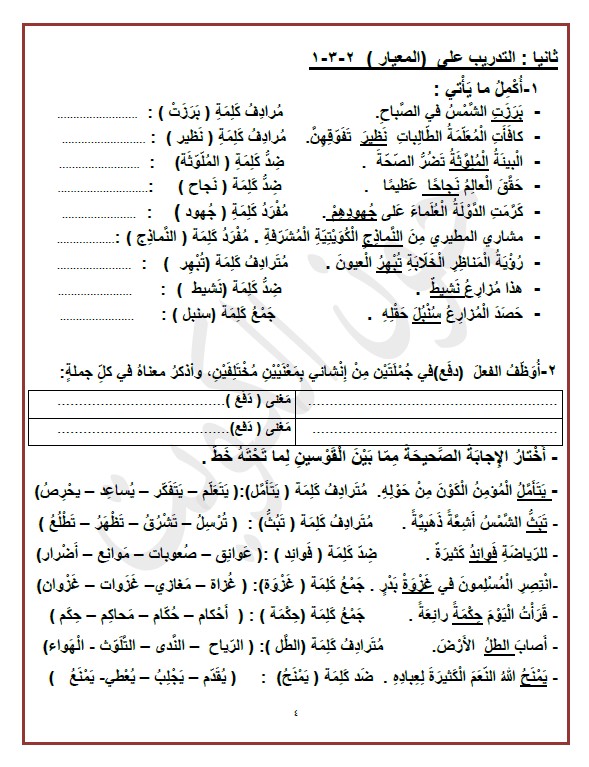 ثانيا : التدريب على (المعيار ) ٢-٣-١
١-أُكْمِلُ ما يَأْتي :
- بَرَزَتِ الشَّمْسُ في الصَّباحِ. مُرادِفُ كَلِمَةِ ( بَرَزَتْ ) : .........................
- كافَأَتِ الْمُعَلِّمَةُ الطّالِباتِ نَظيرَ تَفَوُّقِهِنَّ. مُرادِفُ كَلِمَةِ ( نَظير ) : .........................
- الْبيئَةُ الْمُلَوَّثَةُ تَضُرُّ الصّحَةَ . ضِدُّ كَلِمَةِ ( الْمُلَوَّثَة) : .........................
- حَقَّقَ الْعالِمُ نَجاحًا عَظيمًا . ضِدُّ كَلِمَة ( نَجاح ) :.........................
- كَرَّمَتِ الدَّوْلَةُ الْعُلَماءَ عَلى جُهودِهِمْ . مُفْرَدُ كَلِمَةِ ( جُهود ) : .........................
- مشاري المطيري مِنَ النَّماذِجِ الْكُوَيْتِيّةِ الْمُشَرّفَةِ . مُفْرَدُ كَلِمَةِ ( النَّماذِج ) :..
- رُؤْيَةُ الْمَناظِرِ الْخَلّابَةِ تُبْهِرُ الْعيونَ . مُتَرادِفُ كَلِمَةِ (تُبْهِر ) : .........................
- هذا مُزارِعٌ نَشيطٌ . ضِدُّ كَلِمَة (نَشيط ) : .........................
- حَصَدَ الْمُزارِعُ سُنْبُلَ حَقْلِهِ . جَمْعُ كَلِمَة (سنبل ) : .........................
٢-أُوَظِّفُ الفعلَ (دفَع)في جُمْلَتَيْنِ مِنْ إِنْشائي بِمَعْنَيَيْنِ مُخْتَلِفَيْنِ، وأذكرُ معناهُ في كلِّ جملةٍ:
......................................................... مَعْنى ( دَفَعَ )...................................
......................................................... مَعْنى ( دَفَعَ)...................................
- أَخْتارُ الإِجابَةَ الصَّحيحَةَ مِمّا بَيْنَ الْقَوْسينِ لِما تَحْتَهُ خَطٌّ .
- يَتَأَمَّلُ الْمُؤمِنُ الْكَوْنَ مِنْ حَوْلِهِ. مُتَرادِفُ كَلِمَة ( يَتَأَمَّل):( يَتَعَلَّم – يَتَفَكّر – يُساعِد – يحْرِصُ)
- تَبَثُّ الشَّمْسُ أَشِعَّةً ذَهَبِيَّةً . مُتَرادِفُ كَلِمَة ( تَبُثُّ) : ( تُرْسِلُ – تَشْرُقُ – تَظْهَرُ – تَطْلُعُ )
- للرّياضَةِ فَوائِدُ كَثيرَةٌ . ضِدُّ كَلِمَة ( فَوائِد ) :( عَوائِق – صُعوبات – مَوانِع – أَضْرار)
-انْتِصِرِ الْمُسْلِمونَ في غَزْوَةِ بَدْرٍ . جَمْعُ كَلِمَة ( غَزْوَة): ( غُزاة – مَغازي– غَزَوات – غَزْوان)
- قَرَأْتُ الْيَوْمَ حِكْمَةً رائِعَةً . جَمْعُ كَلِمَة (حِكْمَة ) : ( أَحْكام – حُكّام – مَحاكِم – حِكَم )
- أَصابَ الطلُ الأَرْضَ. مُتَرادِفُ كَلِمَة (الطَّل ): ( الرّياح – النَّدى – التَّلَوّث - الْهَواء)
- يَمْنَحُ اللهُ النّعَمَ الْكَثيرَةَ لِعِبادِهِ . ضَد كَلِمَة ( يَمْنَحُ) : ( يُقَدّم – يَجْلِبُ – يُعْطي- يَمْنَعُ )
٤
جيران الكويت